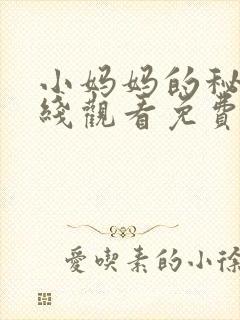 小妈妈的秘
綫觀看免費
愛喫素的小徐